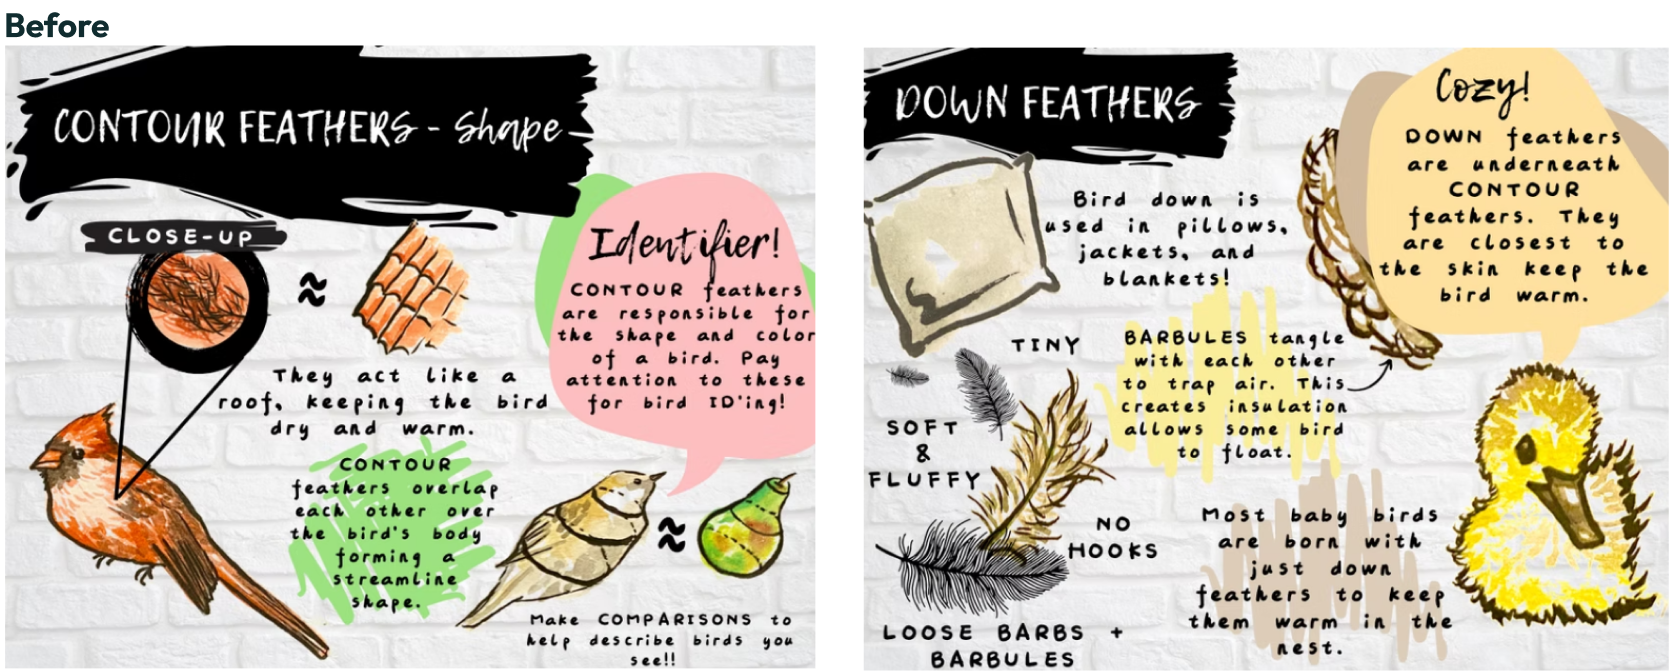 Before
CONTOUR FEATHERS - Shape
CLOSE-UP
≈
Identifier!
CONTOUR feathers
are responsible for
the shape and color
of a bird. Pay
attention to these
for bird ID'ing!
They act like a
roof, keeping the bird
dry and warm.
CONTOUR
feathers overlap
each other over
the bird's body
forming a
streamline
shape.
≈
Make COMPARISONS to
help describe birds you
see!!
DOWN FEATHERS
Cozy!
DOWN feathers
are underneath
CONTOUR
feathers. They
are closest to
the skin keep the
bird warm.
Bird down is
used in pillows,
jackets, and
blankets!
TINY
BARBULES tangle
with each other
to trap air. This
creates insulation
allows some bird
to float.
SOFT
&
FLUFFY
NO
HOOKS
Most baby birds
are born with
just down
feathers to keep
them warm in the
nest.
LOOSE BARBS +
BARBULES